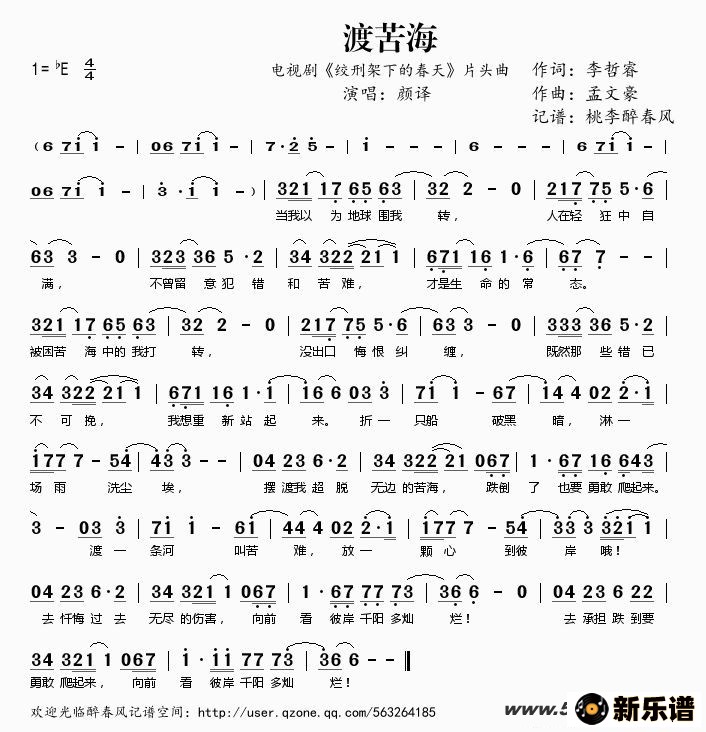 渡苦海
1= ♭E 4/4
电视剧《绞刑架下的春天》片头曲 作词：李哲睿
演唱：颜译 作曲：孟文豪
记谱：桃李醉春风
（6 7i i － | 06 7i i － | 7·2 5 － | i － － － | 6 － － － | 6 7i i － |
06 7i i － | 3·i i － ） | 321 17 65 63 | 32 2 － 0 | 217 75 5·6 |
当我以 为地球 围我 转， 人在轻 狂中自
63 3 － 0 | 323 36 5·2 | 34 322 21 1 | 671 16 1·6 | 67 7 － － |
满， 不曾留 意犯错 和 苦难， 才是生 命的常 态。
321 17 65 63 | 32 2 － 0 | 217 75 5·6 | 63 3 － 0 | 333 36 5·2 |
被困苦 海中的我打 转， 没出口 悔恨纠 缠， 既然那 些错已
34 322 21 1 | 671 16 1·i | i6 6 03 3 | 7i i － 67 | i4 4 02 2·i |
不 可挽， 我想重 新站起 来。 折一 只船 破黑 暗， 淋一
i77 7 － 54 | 43 3 － － | 04 23 6·2 | 34 322 21 067 | 1·67 16 643 |
场雨 洗尘 埃， 摆渡我超 脱 无边的苦海， 跌倒 了 也要 勇敢 爬起来。
3 － 03 3 | 7i i － 6i | 44 4 02 2·i | i77 7 － 54 | 33 3 32i i |
渡一 条河 叫苦 难， 放一 颗心 到彼 岸 哦！
04 23 6·2 | 34 321 1 067 | 1·67 77 73 | 36 6 － 0 | 04 23 6 22 |
去忏悔 过 去 无尽的伤害， 向前 看 彼岸 千阳 多灿 烂！ 去承担 跌到要
34 321 1 067 | i·ii 77 73 | 36 6 － － ‖
勇敢 爬起来， 向前 看 彼岸 千阳 多灿 烂！
欢迎光临醉春风记谱空间：http://user.qzone.qq.com/563264185
www.5
新乐谱